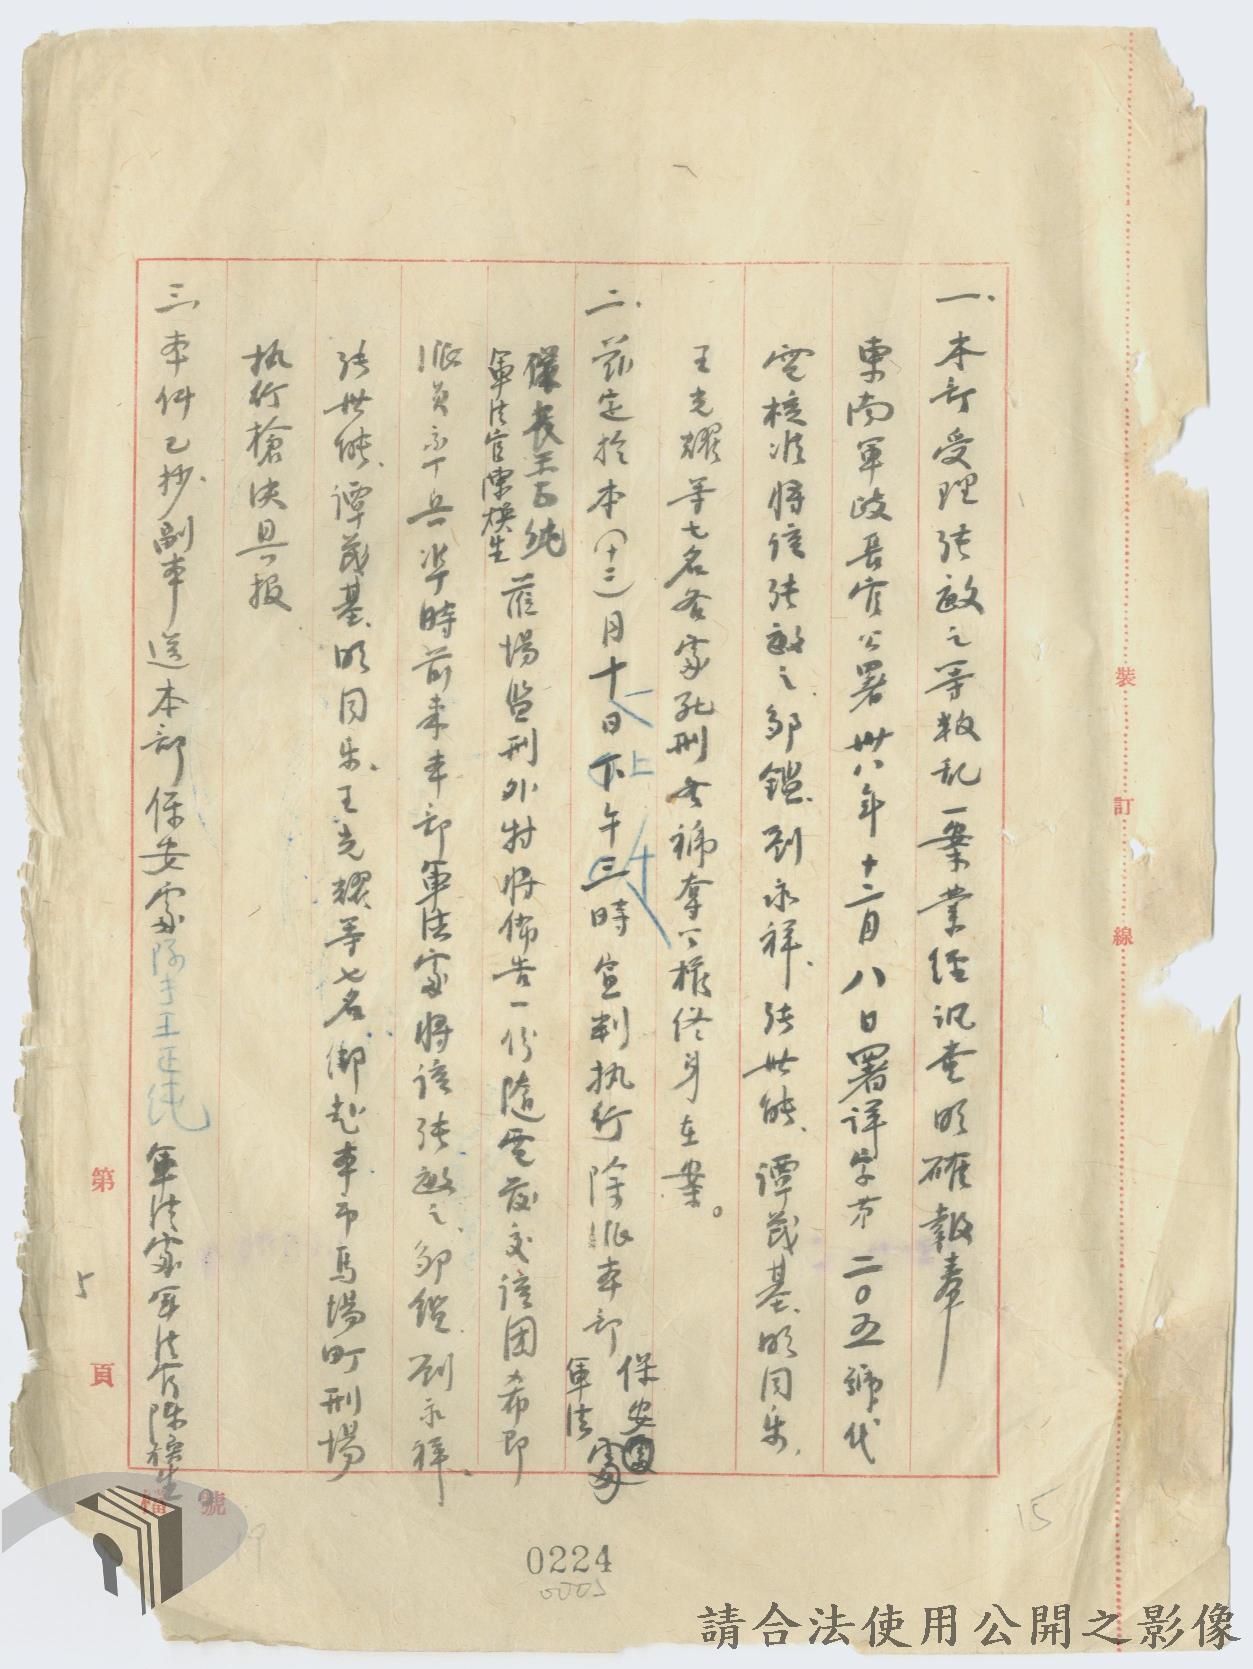 一、本部受理張敏之等叛乱一案業經訊查明確報奉
東南軍政長官公署卅八年十二月八日署詳字第二〇五號代
電核准將該張敏之、鄒鑑、劉永祥、張世能、譚茂基、明同樂、
王光耀等七名各處死刑各褫奪公權終身在案。
二、茲定於本(十二)月十日下午三時宣判执行除派本部保安軍法處
一
上
十
王正純
軍法官陳煥生蒞場監刑外特將佈告一份隨電發交該团希即
派員率兵準時前來本部軍法處將該張敏之、鄒鑑、劉永祥、
張世能、譚茂基、明同樂、王光耀等七名綁赴本市馬場町刑場
执行槍決具报
三、本件已抄副本送本部保安處隊長王正純軍法處軍法官陳煥生
裝
訂
線
第
5
頁
檔號
15
19
0224
0005
請合法使用公開之影像